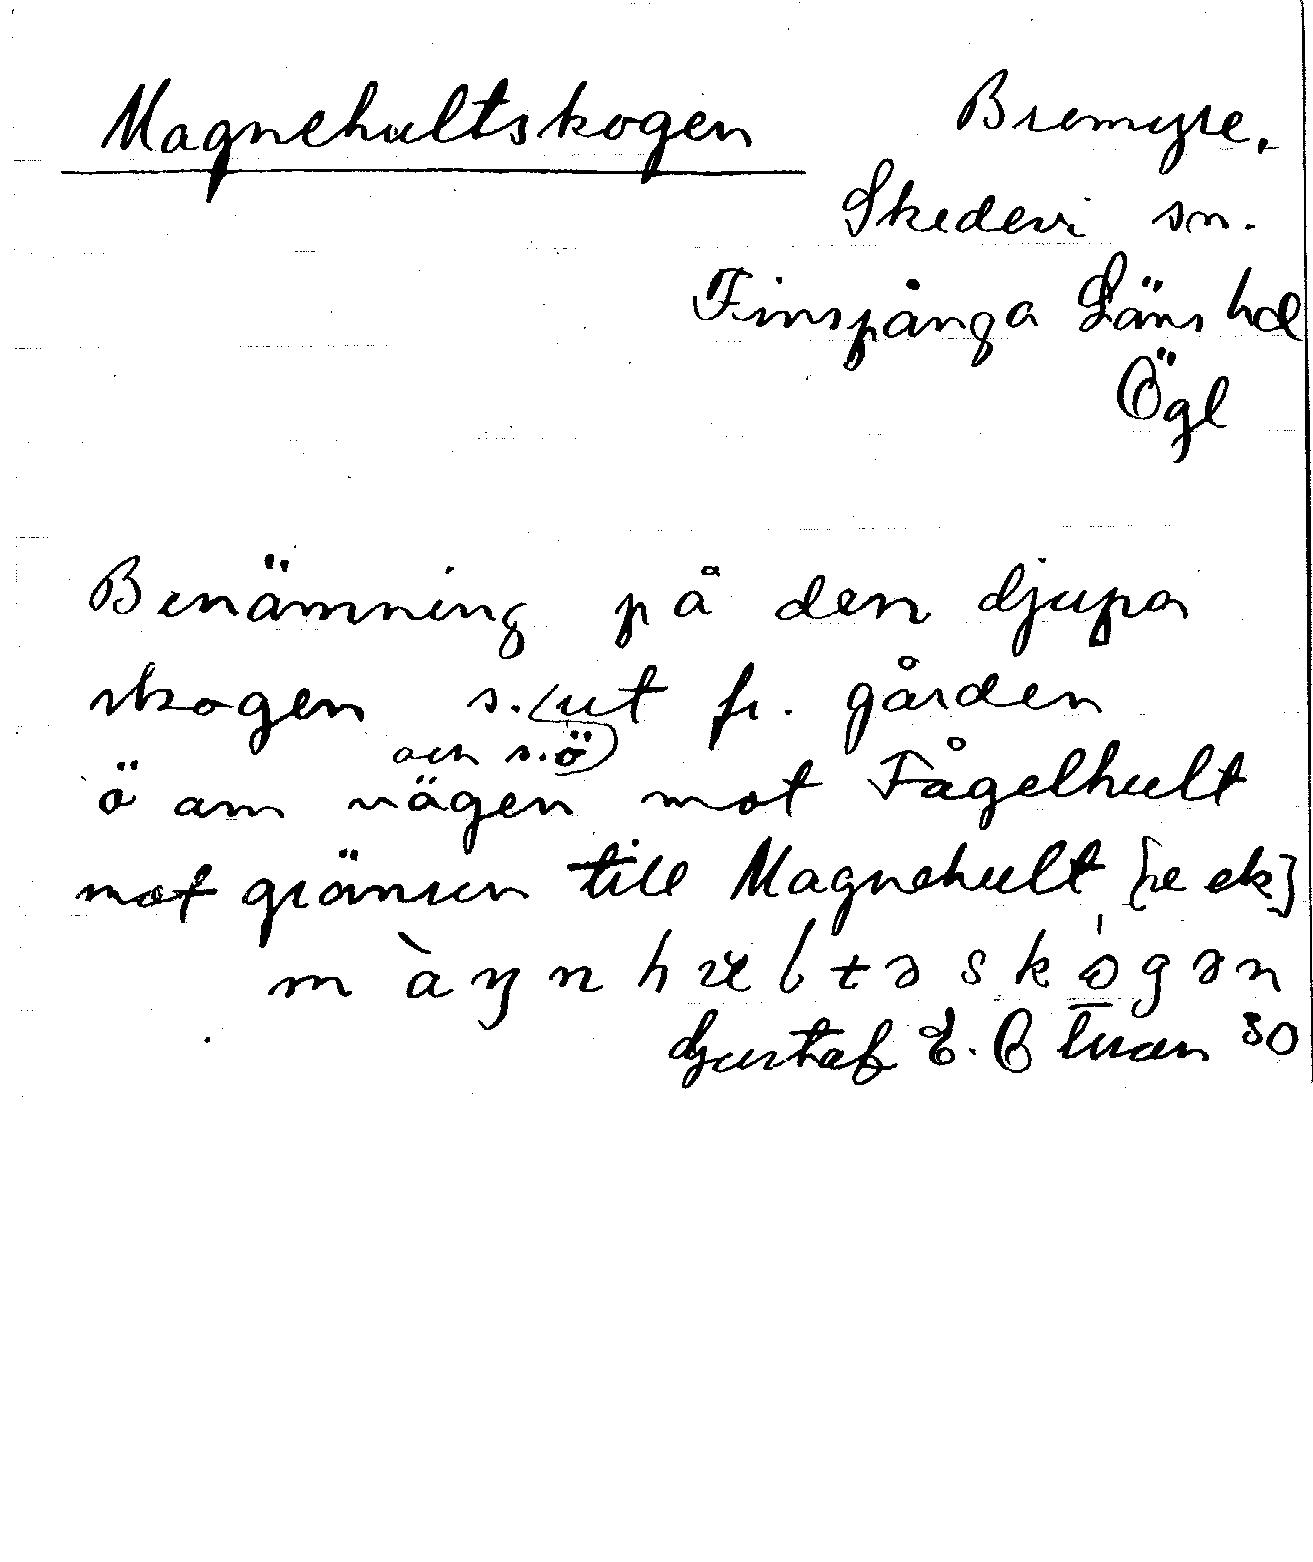 Magnehultskogen
Bremyre.
Skedevi sn.
Finspånga Läns hd
Ögl
Benämning på den djupa
skogen s. ut fr. gården
och s.ö
ö om vägen mot Fågelhult
mot gränsen till Magnehult [se ek]
Gustaf E. 30